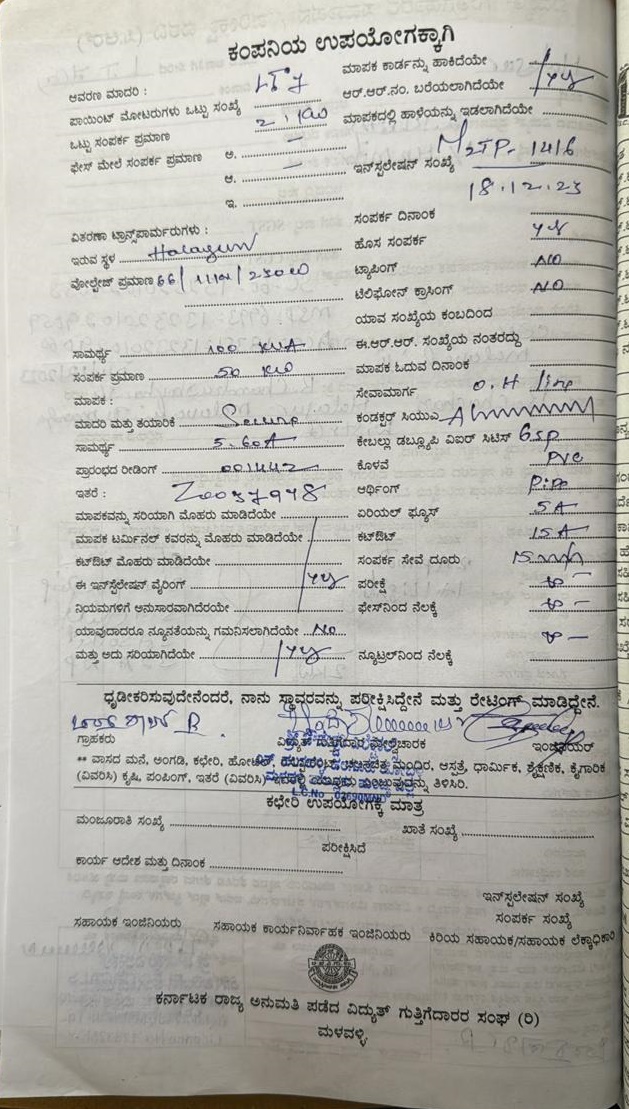 ಕಂಪನಿಯ ಉಪಯೋಗಕ್ಕಾಗಿ
ಆವರಣ ಮಾದರಿ :
ಪಾಯಿಂಟ್ ಮೋಟರುಗಳು ಒಟ್ಟು ಸಂಖ್ಯೆ
ಒಟ್ಟು ಸಂಪರ್ಕ ಪ್ರಮಾಣ
ಫೇಸ್ ಮೇಲೆ ಸಂಪರ್ಕ ಪ್ರಮಾಣ ಅ.
ಆ.
ಇ.
ವಿತರಣಾ ಟ್ರಾನ್ಸ್‌ಪಾರ್ಮರುಗಳು :
ಇರುವ ಸ್ಥಳ Halagur
ವೋಲ್ಟೇಜ್ ಪ್ರಮಾಣ 66/11
ಸಾಮರ್ಥ್ಯ 100 KVA
ಸಂಪರ್ಕ ಪ್ರಮಾಣ 50
ಮಾಪಕ :
ಮಾದರಿ ಮತ್ತು ತಯಾರಿಕೆ Secure
ಸಾಮರ್ಥ್ಯ 5.60A
ಪ್ರಾರಂಭದ ರೀಡಿಂಗ್ 001442
ಇತರೆ : Z0037978
ಮಾಪಕವನ್ನು ಸರಿಯಾಗಿ ಮೊಹರು ಮಾಡಿದೆಯೇ
ಮಾಪಕ ಟರ್ಮಿನಲ್ ಕವರನ್ನು ಮೊಹರು ಮಾಡಿದೆಯೇ
ಕಟ್‌ಔಟ್ ಮೊಹರು ಮಾಡಿದೆಯೇ
ಈ ಇನ್‌ಸ್ಟಲೇಷನ್ ವೈರಿಂಗ್ yes
ನಿಯಮಗಳಿಗೆ ಅನುಸಾರವಾಗಿದೆರಯೇ
ಯಾವುದಾದರೂ ನ್ಯೂನತೆಯನ್ನು ಗಮನಿಸಲಾಗಿದೆಯೇ No
ಮತ್ತು ಅದು ಸರಿಯಾಗಿದೆಯೇ yes
ಮಾಪಕ ಕಾರ್ಡನ್ನು ಹಾಕಿದೆಯೇ
ಆರ್.ಆರ್.ನಂ. ಬರೆಯಲಾಗಿದೆಯೇ yes
ಮಾಪಕದಲ್ಲಿ ಹಾಳೆಯನ್ನು ಇಡಲಾಗಿದೆಯೇ
ಇನ್‌ಸ್ಟಲೇಷನ್ ಸಂಖ್ಯೆ M2JP-1416
18.12.23
ಸಂಪರ್ಕ ದಿನಾಂಕ
ಹೊಸ ಸಂಪರ್ಕ yes
ಟ್ಯಾಪಿಂಗ್ NO
ಟೆಲಿಫೋನ್ ಕ್ರಾಸಿಂಗ್ NO
ಯಾವ ಸಂಖ್ಯೆಯ ಕಂಬದಿಂದ
ಈ.ಆರ್.ಆರ್. ಸಂಖ್ಯೆಯ ನಂತರದ್ದು
ಮಾಪಕ ಓದುವ ದಿನಾಂಕ
ಸೇವಾಮಾರ್ಗ O.H line
ಕಂಡಕ್ಟರ್ ಸಿಯುಎ
ಕೇಬಲ್ಲು ಡಬ್ಲ್ಯೂಪಿ ವಿಐರ್ ಸಿಟಿಸ್
ಕೊಳವೆ PVC
ಆರ್ಥಿಂಗ್ Pipe
ಏರಿಯಲ್ ಫ್ಯೂಸ್ 5A
ಕಟ್‌ಔಟ್ 15A
ಸಂಪರ್ಕ ಸೇವೆ ದೂರು
ಪರೀಕ್ಷೆ
ಫೇಸ್‌ನಿಂದ ನೆಲಕ್ಕೆ
ನ್ಯೂಟ್ರಲ್‌ನಿಂದ ನೆಲಕ್ಕೆ
ಧೃಡೀಕರಿಸುವುದೇನೆಂದರೆ, ನಾನು ಸ್ಥಾವರವನ್ನು ಪರೀಕ್ಷಿಸಿದ್ದೇನೆ ಮತ್ತು ರೇಟಿಂಗ್ ಮಾಡಿದ್ದೇನೆ.
ಗ್ರಾಹಕರು ವಿದ್ಯುತ್ ಗುತ್ತಿಗೆದಾರ ಇಂಜಿನಿಯರ್
** ವಾಸದ ಮನೆ, ಅಂಗಡಿ, ಕಛೇರಿ, ಹೋಟೆಲ್, ಚಲನಚಿತ್ರ ಮಂದಿರ, ಆಸ್ಪತ್ರೆ, ಧಾರ್ಮಿಕ, ಶೈಕ್ಷಣಿಕ, ಕೈಗಾರಿಕೆ
(ವಿವರಿಸಿ) ಕೃಷಿ, ಪಂಪಿಂಗ್, ಇತರೆ (ವಿವರಿಸಿ) ತಿಳಿಸಿರಿ.
ಕಛೇರಿ ಉಪಯೋಗಕ್ಕೆ ಮಾತ್ರ
ಮಂಜೂರಾತಿ ಸಂಖ್ಯೆ ಖಾತೆ ಸಂಖ್ಯೆ
ಪರೀಕ್ಷಿಸಿದೆ
ಕಾರ್ಯ ಆದೇಶ ಮತ್ತು ದಿನಾಂಕ
ಇನ್‌ಸ್ಪಲೇಷನ್ ಸಂಖ್ಯೆ
ಸಂಪರ್ಕ ಸಂಖ್ಯೆ
ಸಹಾಯಕ ಇಂಜಿನಿಯರು ಸಹಾಯಕ ಕಾರ್ಯನಿರ್ವಾಹಕ ಇಂಜಿನಿಯರು ಕಿರಿಯ ಸಹಾಯಕ/ಸಹಾಯಕ ಲೆಕ್ಕಾಧಿಕಾರಿ
ಕರ್ನಾಟಕ ರಾಜ್ಯ ಅನುಮತಿ ಪಡೆದ ವಿದ್ಯುತ್ ಗುತ್ತಿಗೆದಾರರ ಸಂಘ (ರಿ)
ಮಳವಳ್ಳಿ